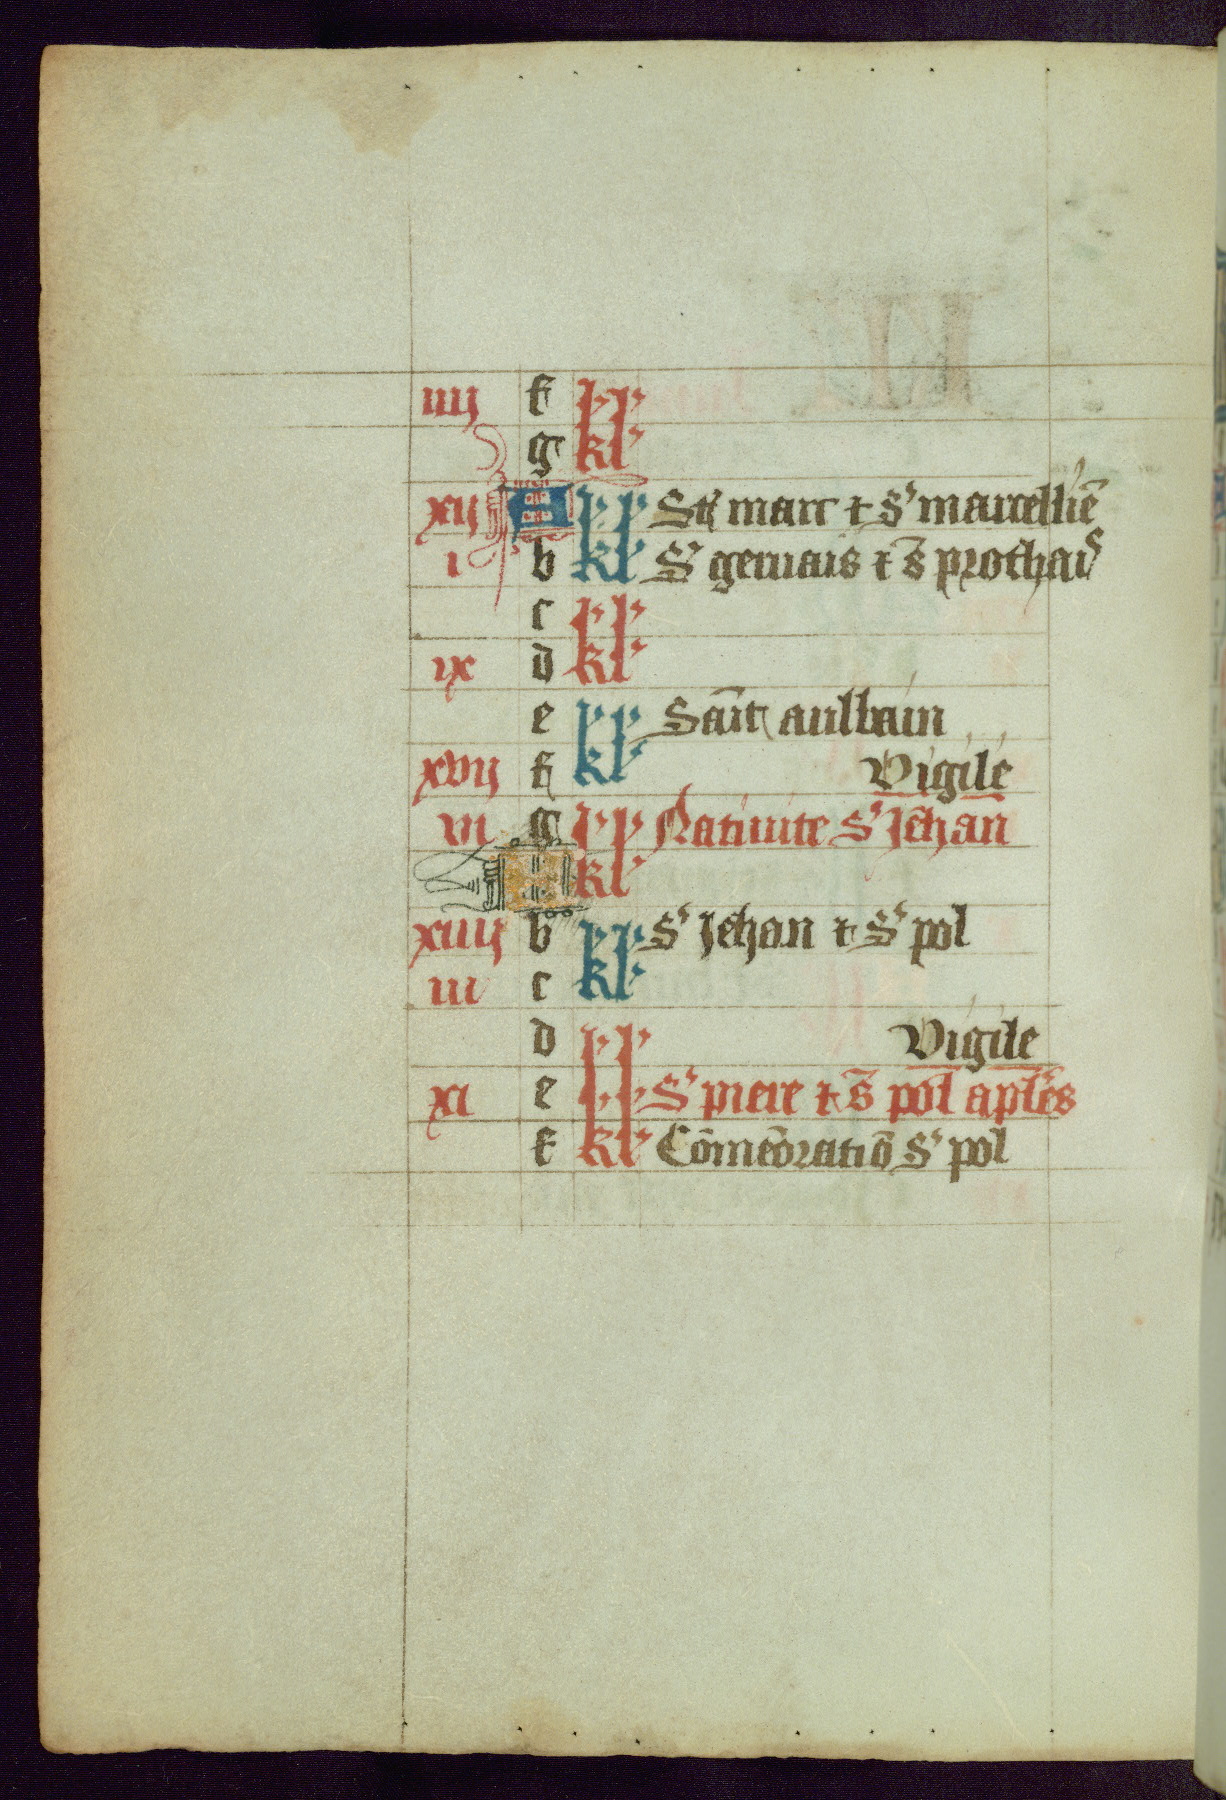 iiij f kl
g kl
xij A kl St marc ⁊ s' marcelliē
i b kl S' geruais ⁊ s̄ prothais
c kl
ix d kl
e kl Sāīt aulbain
xvij f kl Vigile
vi g kl Natiuite s' Jehan
A kl
xiiij b kl S' Jehan ⁊ s' pol
iii c kl
d kl Vigile
xi e kl S' piere ⁊ s̄ pol apl̄es
f kl Cōmēoratiō s' pol